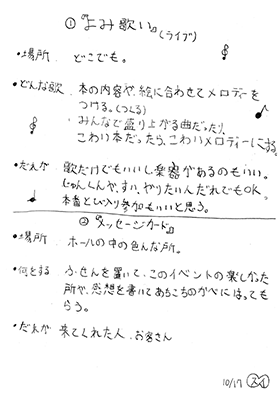 ① 『よみ歌い』(ライブ)
・場所 どこでも。
・どんな歌 本の内容や、絵に合わせてメロディーを
つける。(つくる)
みんなで盛り上がる曲だったり、
こわい本だったら、こわいメロディーにする。
・だれが 歌だけでもいいし楽器があるのもいい。
じゅんくんや、すい、やりたい人だれでもOK。
本番とび入り参加もいいと思う。
② 『メッセージカード』
・場所 ホールの中の色んな所。
・何をする ふせんを置いて、このイベントの楽しかった
所や、感想を書いてあちこちのかべにはっても
らう。
・だれが 来てくれた人、お客さん
10/17